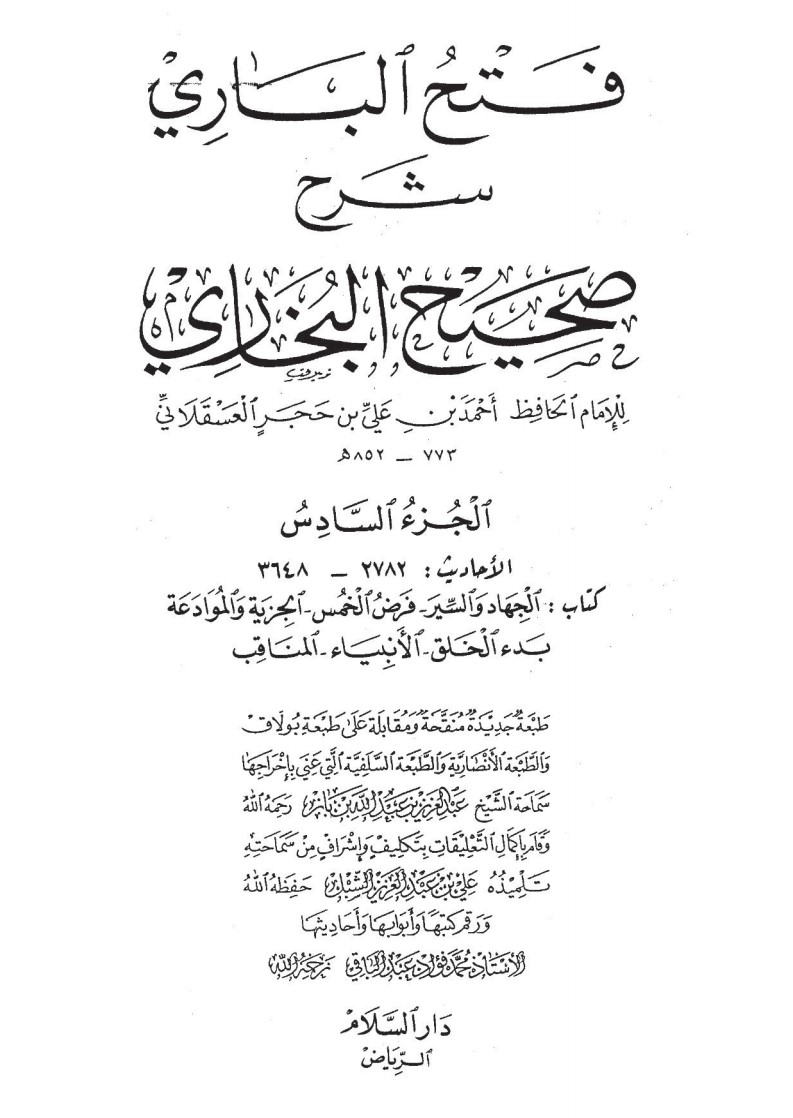 فَتْحُ ٱلبَارِي
شَرح
صَحِيح البُخَارِي
لِلإِمَام ٱلحَافِظ أَحْمَد بْن عَلِيِّ بن حَجَرٍ ٱلْعَسْقَلَانِيِّ
٧٧٣ ــ ٨٥٢هـ
ٱلْجُزءُ ٱلسَّادِسُ
الأحاديث : ٢٧٨٢ ــ ٣٦٤٨
كتاب : ٱلْجِهَاد وَٱلسِّيَر - فَرضُ ٱلْخُمُس - ٱلجِزيَة وَٱلمُوَادَعَة
بَدء ٱلْخَلق - ٱلْأَنبِيَاء - ٱلمنَاقِب
طَبْعَةٌ جَدِيْدَةٌ مُنَقَّحَةٌ وَمُقَابَلَة عَلىٰ طَبْعَةِ بُولَاق
وَٱلطَّبْعَة ٱلْأَنْصَارِيَّة وَٱلطَّبْعَة ٱلسَّلَفِيَّة ٱلَّتِي عَنِيَ بِإِخْرَاجِهَا
سَمَاحَة ٱلشَّيْخ عَبْدُ ٱلعَزِيز بن عَبْدِ ٱللّٰه بن بَاز رَحِمَهُ ٱللّٰهُ
وَقَامَ بِإِكمَالِ ٱلتَّعْلِيْقَاتِ بِتَكْلِيْفٍ وَإِشْرَافٍ مِنْ سَمَاحَتِهِ
تَلْمِيْذُهُ عَلِيّ بْن عَبْدِ ٱلْعَزِيز ٱلشِّبْل حَفِظَهُ ٱللّٰهُ
وَرَقم كتبهَا وَأَبوَابهَا وَأَحَاديثهَا
الأُسْتَاذ مُحَمَّد فُؤَاد عَبْدُ ٱلبَاقِي رَحِمَهُ ٱللّٰه
دَار ٱلسَّلَام
ٱلرِّيَاض